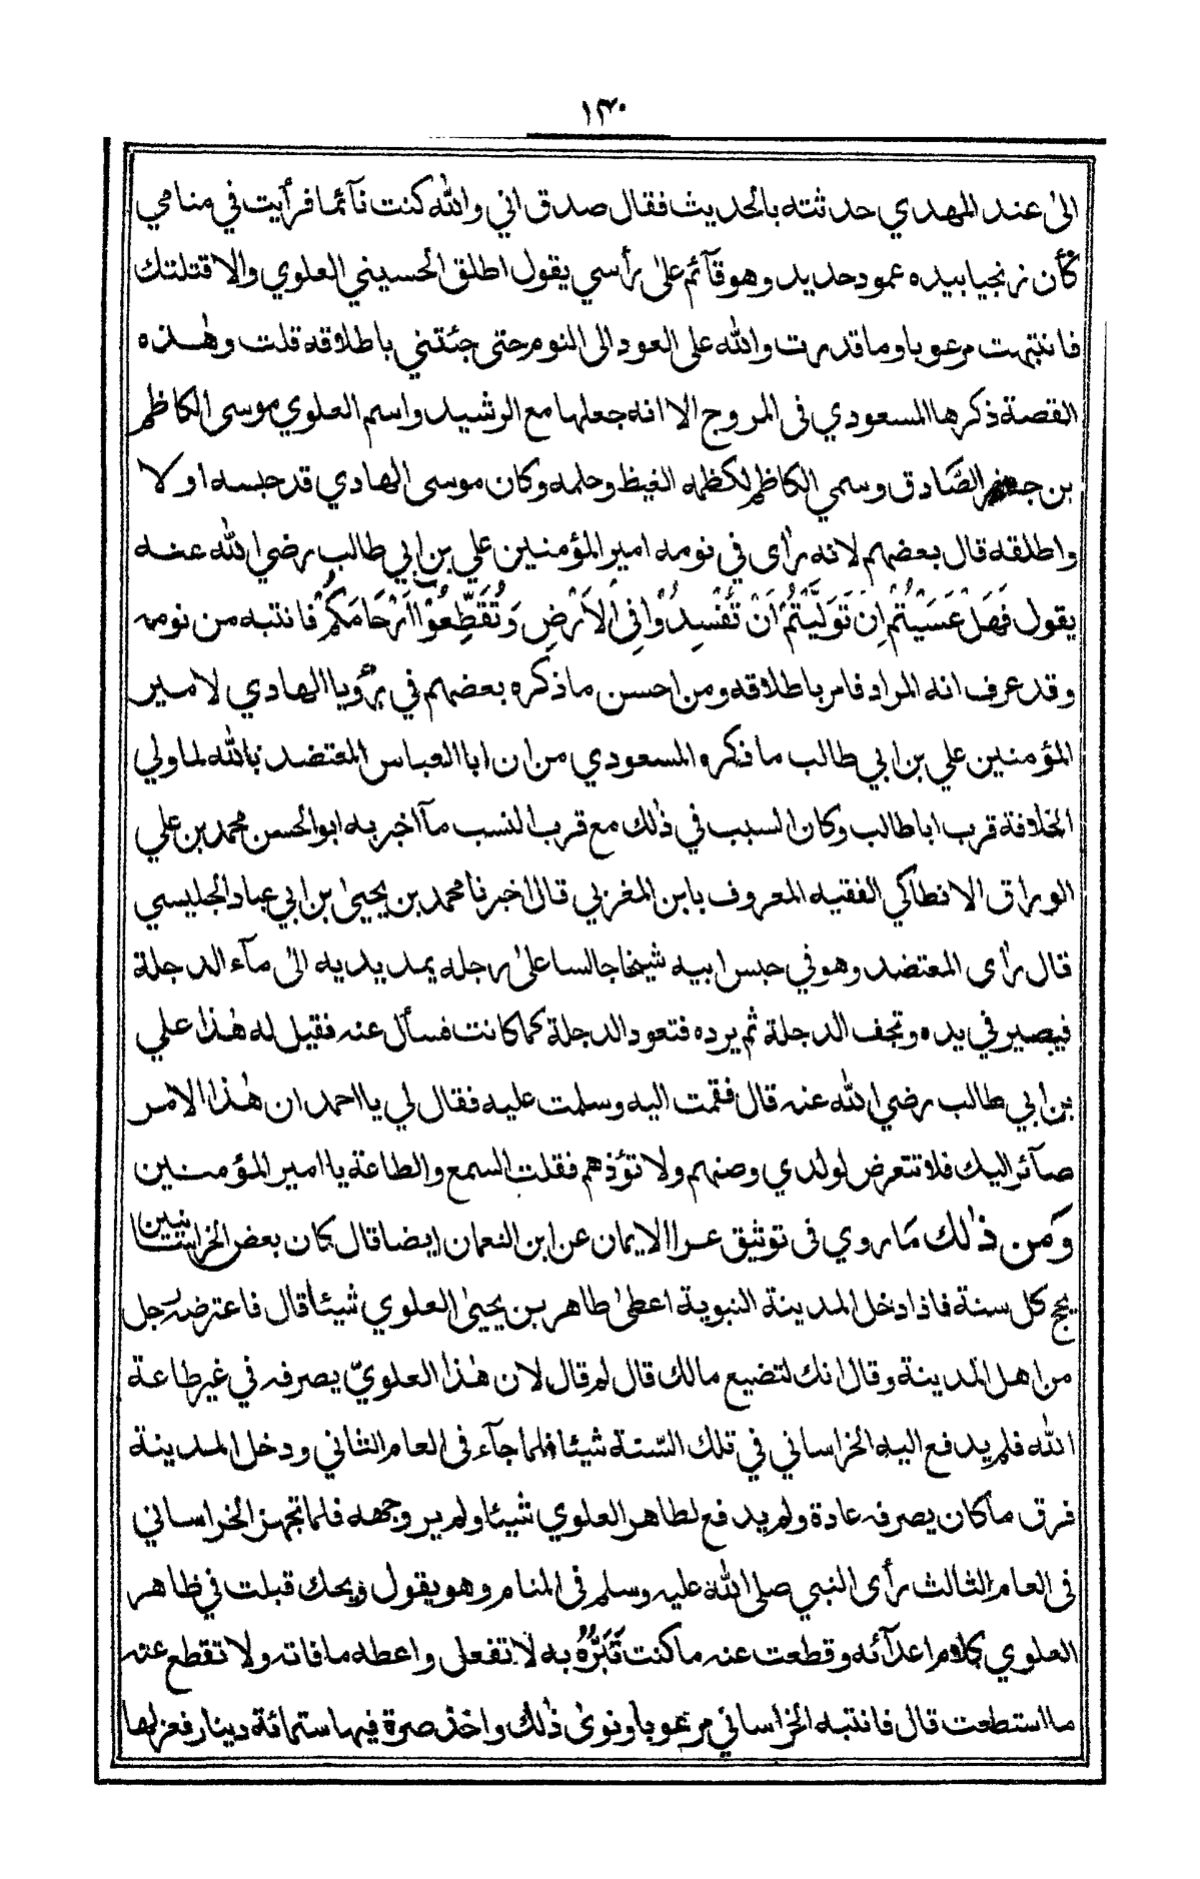 ١٣٠
الىٰ عند المهدي حدثته بالحديث فقال صدق اني والله كنت نآئما فرأيت في منامي
كأن زنجيا بيده عمود حديد وهو قآئم علىٰ رأسي يقول اطلق الحسيني العلوي والا قتلتك
فانتبهت مرعوبا وما قدرت والله على العود الى النوم حتى جئتني باطلاقه قلت وهٰذه
القصة ذكرها المسعودي فى المروج الا انه جعلها مع الرشيد واسم العلوي موسى الكاظم
بن جعفر الصَّادق وسمي الكاظم لكظمه الغيظ وحلمه وكان موسى الهادي قد حبسه اولا
واطلقه قال بعضهم لانه رأى في نومه امير المؤمنين علي بن ابي طالب رضي الله عنه
يقول فَهَلْ عَسَيْتُمْ اِنْ تَوَلَّيْتُمْ اَنْ تُفْسِدُوْا فِى الْاَرْضِ وَتُقَطِّعُوْآ اَرْحَامَكُمْ فانتبه من نومه
وقد عرف انه المراد فامر باطلاقه ومن احسن ما ذكره بعضهم في رؤيا الهادي لامير
المؤمنين علي بن ابي طالب ما ذكره المسعودي من ان ابا العباس المعتضد بالله لما ولي
الخلافة قرب ابا طالب وكان السبب في ذٰلك مع قرب النسب مآ اخبر به ابو الحسن محمد بن علي
الوراق الانطاكي الفقيه المعروف بابن المغربي قال اخبرنا محمد بن يحيىٰ بن ابي عباد الجليسي
قال رأى المعتضد وهو في حبس ابيه شيخا جالسا علىٰ رجله يمد يديه الىٰ مآء الدجلة
فيصير في يده وتجف الدجلة ثم يرده فتعود الدجلة كما كانت فسأل عنه فقيل له هٰذا علي
بن ابي طالب رضي الله عنه قال فقمت اليه وسلمت عليه فقال لي يا احمد ان هٰذا الامر
صآئر اليك فلا تتعرض لولدي وصنهم ولا تؤذهم فقلت السمع والطاعة يا امير المؤمنين
وَمن ذٰلك مَا روي فى توثيق عرا الايمان عن ابن النعمان ايضا قال كان بعض الخراسانيين
يحج كل سنة فاذا دخل المدينة النبوية اعطىٰ طاهر بن يحيىٰ العلوي شيئا قال فاعترضه رجل
من اهل المدينة وقال انك لتضيع مالك قال لم قال لان هٰذا العلويّ يصرفه في غير طاعة
الله فلم يدفع اليه الخراساني في تلك السّنة شيئا فلما جآء فى العام الثاني ودخل المدينة
فرق ما كان يصرفه عادة ولم يدفع لطاهر العلوي شيئا ولم ير وجهه فلما تجهز الخراساني
فى العام الثالث رأى النبي صلى الله عليه وسلم فى المنام وهو يقول ويحك قبلت في طاهر
العلوي كلام اعدآئه وقطعت عنه ما كنت تَبَرُّهُ به لا تفعل واعطه ما فاته ولا تقطع عنه
ما استطعت قال فانتبه الخراساني مرعوبا ونوىٰ ذٰلك واخذ صرة فيها ستمائة دينار فعزلها